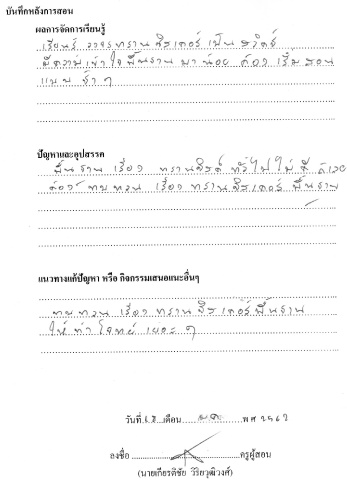 บันทึกหลังการสอน
ผลการจัดการเรียนรู้
เรียนรู้ วงจรทรานซิสเตอร์เป็นสวิตซ์
มีความเข้าใจพื้นฐานมาน้อย ต้องเริ่มสอน
แบบช้าๆ
ปัญหาและอุปสรรค
พื้นฐาน เรื่อง ทรานซิสต์ ทั่วไปไม่ดี
ต้องทบทวน เรื่อง ทรานซิสเตอร์ พื้นฐาน
แนวทางแก้ปัญหา หรือ กิจกรรมเสนอแนะอื่นๆ
ทบทวน เรื่อง ทรานซิสเตอร์พื้นฐาน
ให้ทำโจทย์ เยอะ ๆ
วันที่ เดือน พ.ศ
ลงชื่อ ครูผู้สอน
(นายเกียรติชัย วิริยวุฒิวงศ์)